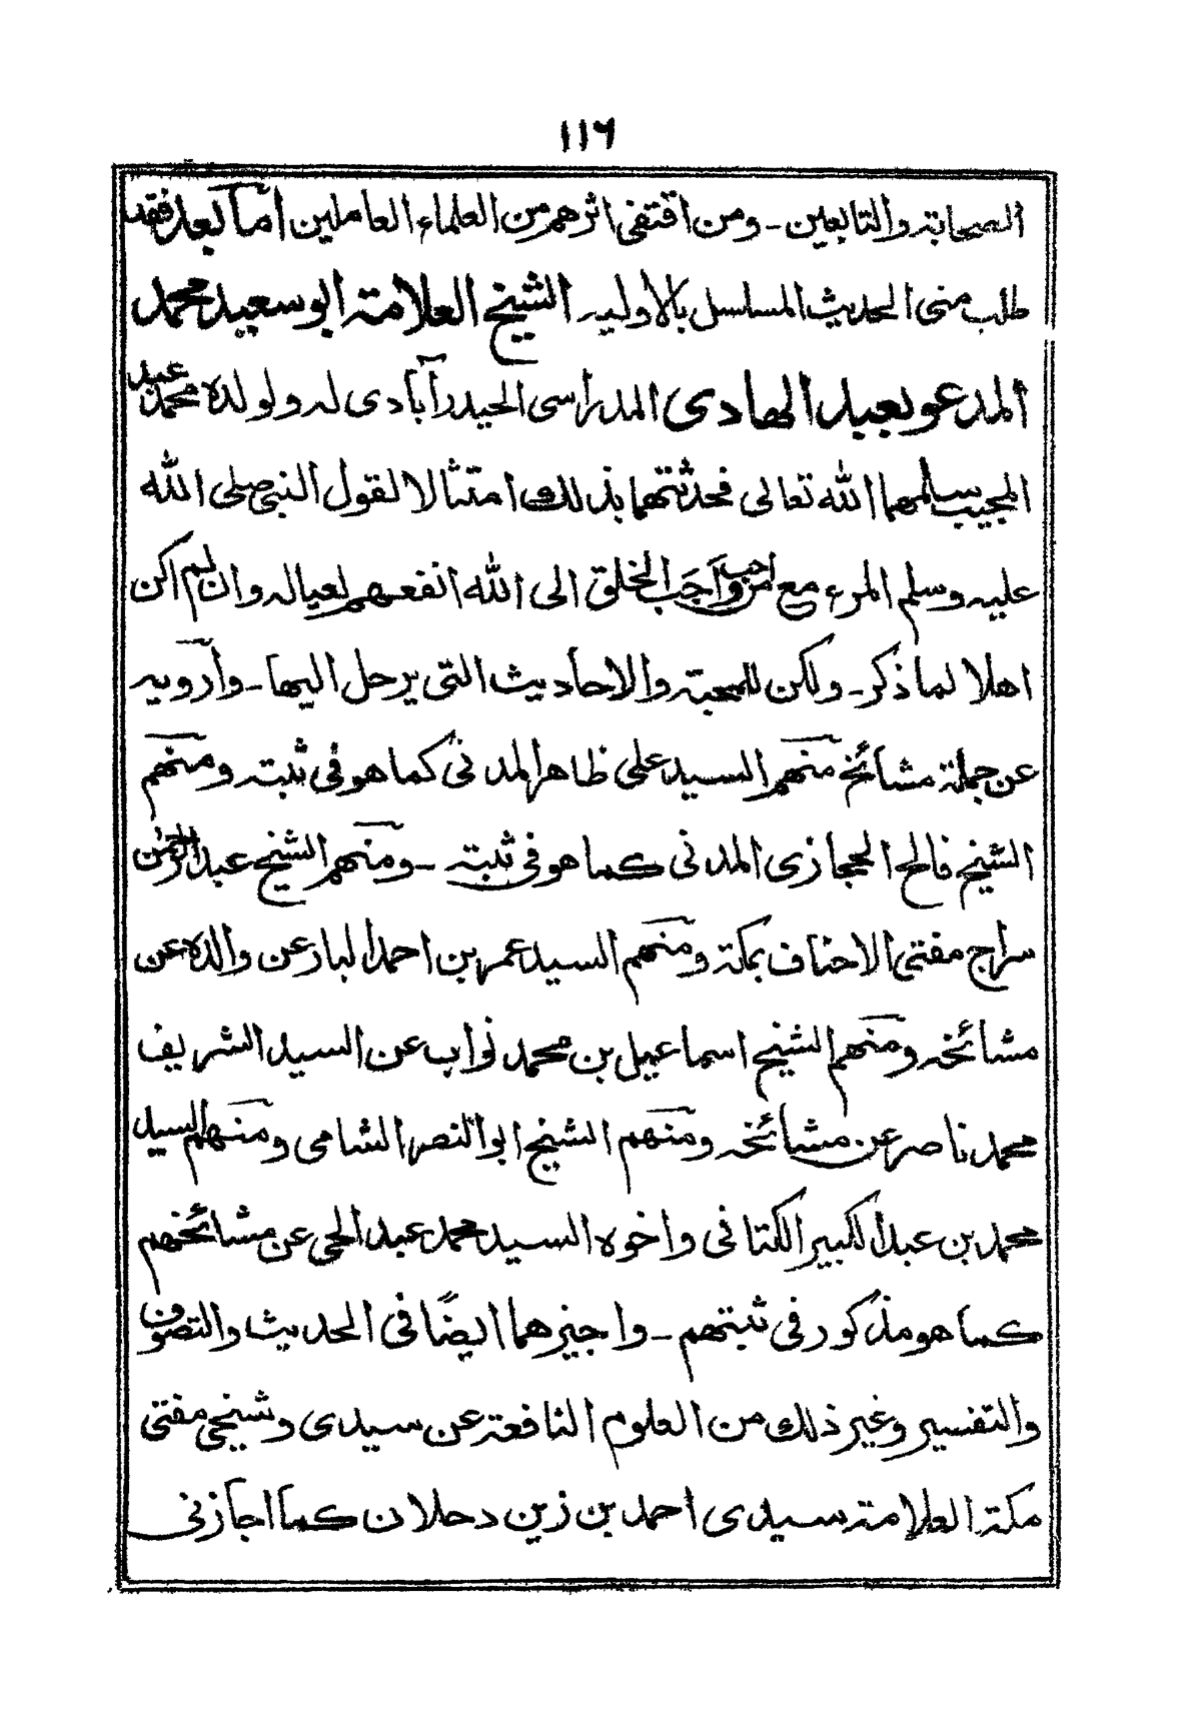 ١١٦
الصحابة والتابعين - ومن اقتفى اثرهم من العلماء العاملين اما بعد فقد
طلب منى الحديث المسلسل بالاولية الشيخ العلامة ابو سعيد محمد
المدعو بعبد الهادى المدراسى الحيدرآبادى له ولولده محمد عبد
المجيب سلمهما الله تعالى فحدثتهما بذلك امتثالا لقول النبى صلى الله
عليه وسلم المرء مع من احب واحب الخلق الى الله انفعهم لعياله وان لم اكن
اهلا لما ذكر - ولكن للمحبة والاحاديث التى يرحل اليها - وأرويه
عن جملة مشائخ منهم السيد على ظاهر المدنى كما هو فى ثبته ومنهم
الشيخ فالح الحجازى المدنى كما هو فى ثبته - ومنهم الشيخ عبد الرحمن
سراج مفتى الاحناف بمكة ومنهم السيد عمر بن احمد البار عن والده عن
مشائخه ومنهم الشيخ اسماعيل بن محمد نواب عن السيد الشريف
محمد ناصر عن مشائخه ومنهم الشيخ ابو النصر الشامى ومنهم السيد
محمد بن عبد الكبير الكتانى واخوه السيد محمد عبد الحى عن مشائخهم
كما هو مذكور فى ثبتهم - واجيزهما ايضًا فى الحديث والتصوف
والتفسير وغير ذلك من العلوم النافعة عن سيدى وشيخى مفتى
مكة العلامة سيدى احمد بن زين دحلان كما اجازنى